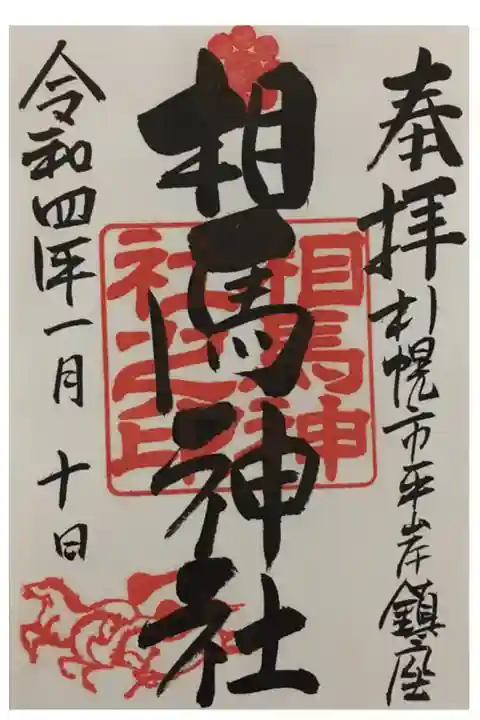 奉拝
札幌市平岸鎮座
相馬神社
相馬神
社之印
令和四年一月 十日